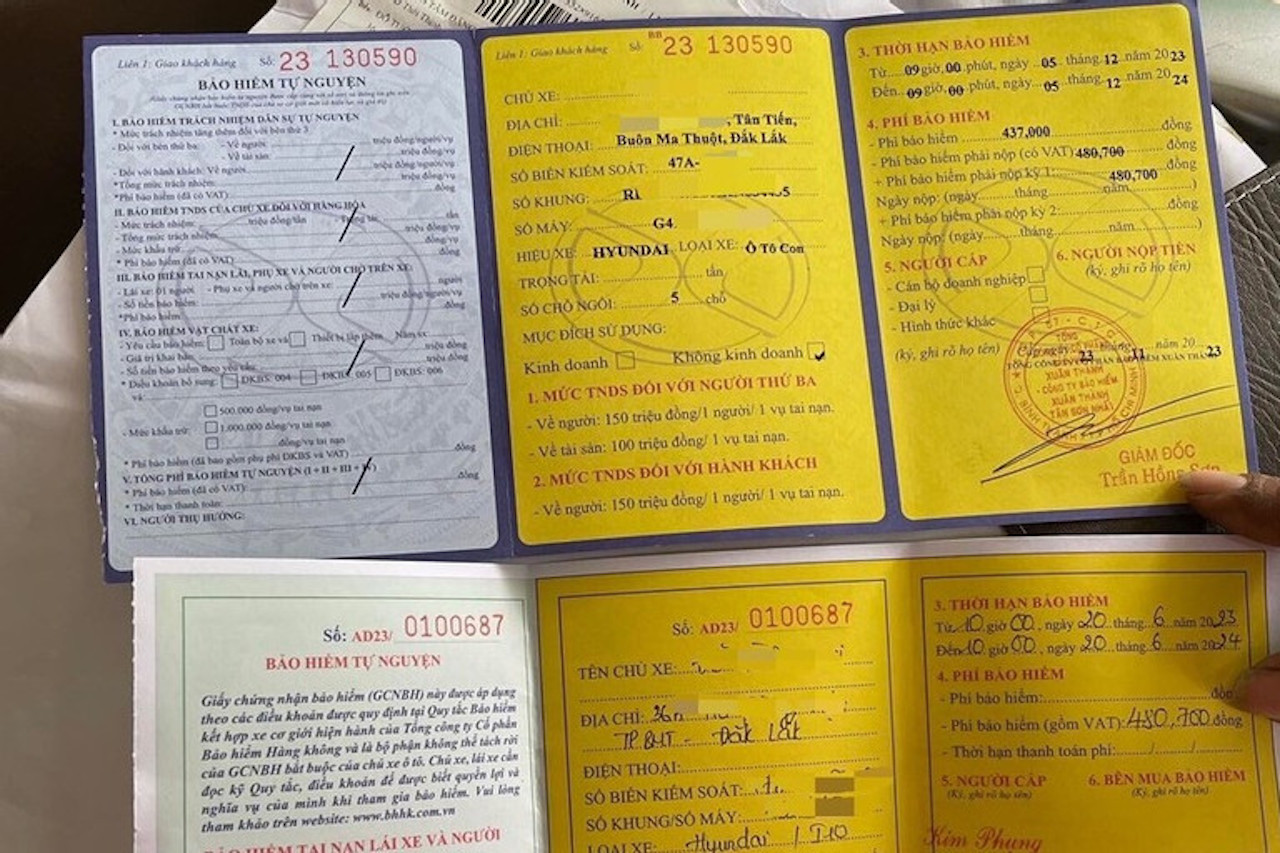 Liên 1: Giao khách hàng Số: 23 130590
BẢO HIỂM TỰ NGUYỆN
I. BẢO HIỂM TRÁCH NHIỆM DÂN SỰ TỰ NGUYỆN
* Mức trách nhiệm tăng thêm đối với bên thứ 3
- Đối với bên thứ ba: - Về người: triệu đồng/người/vụ
- Về tài sản: triệu đồng/vụ
- Đối với hành khách: Về người triệu đồng/người/vụ
*Tổng mức trách nhiệm: triệu đồng/vụ
*Phí bảo hiểm (đã có VAT) đồng
II. BẢO HIỂM TNDS CỦA CHỦ XE ĐỐI VỚI HÀNG HÓA
- Mức trách nhiệm: triệu đồng/tấn tấn
- Tổng mức trách nhiệm: triệu đồng/vụ
- Mức khấu trừ: đồng/vụ
* Phí bảo hiểm (đã có VAT) đồng
III. BẢO HIỂM TAI NẠN LÁI, PHỤ XE VÀ NGƯỜI CHỞ TRÊN XE:
- Lái xe: 01 người - Phụ xe và người chở trên xe: người
- Số tiền bảo hiểm: triệu đồng/người/vụ
*Phí bảo hiểm: đồng
IV. BẢO HIỂM VẬT CHẤT XE:
- Yêu cầu bảo hiểm: Toàn bộ xe và Thiết bị lắp thêm Năm sx:
- Giá trị khai báo: triệu đồng
- Số tiền bảo hiểm theo yêu cầu: triệu đồng
* Điều khoản bổ sung: ĐKBS 004 ĐKBS 005 ĐKBS 006
và:
500.000 đồng/vụ tai nạn
- Mức khấu trừ: 1.000.000 đồng/vụ tai nạn
đồng/vụ tai nạn
* Phí bảo hiểm (đã bao gồm phụ phí ĐKBS và VAT) đồng
V. TỔNG PHÍ BẢO HIỂM TỰ NGUYỆN (I + II + III + IV)
* Phí bảo hiểm (đã có VAT): đồng
* Thời hạn thanh toán:
VI. NGƯỜI THỤ HƯỞNG:
Liên 1: Giao khách hàng Số: BB 23 130590
CHỦ XE:
ĐỊA CHỈ: , Tân Tiến,
ĐIỆN THOẠI: Buôn Ma Thuột, Đắk Lắk
SỐ BIỂN KIỂM SOÁT: 47A-
SỐ KHUNG: RL
SỐ MÁY: G4
HIỆU XE: HYUNDAI LOẠI XE: Ô Tô Con
TRỌNG TẢI: tấn
SỐ CHỖ NGỒI: 5 chỗ
MỤC ĐÍCH SỬ DỤNG:
Kinh doanh Không kinh doanh
1. MỨC TNDS ĐỐI VỚI NGƯỜI THỨ BA
- Về người: 150 triệu đồng/1 người/ 1 vụ tai nạn.
- Về tài sản: 100 triệu đồng/ 1 vụ tai nạn.
2. MỨC TNDS ĐỐI VỚI HÀNH KHÁCH
- Về người: 150 triệu đồng/1 người/ 1 vụ tai nạn.
3. THỜI HẠN BẢO HIỂM
Từ 09 giờ, 00 phút, ngày 05 tháng 12 năm 2023
Đến 09 giờ, 00 phút, ngày 05 tháng 12 năm 2024
4. PHÍ BẢO HIỂM
- Phí bảo hiểm 437,000 đồng
- Phí bảo hiểm phải nộp (có VAT) 480,700 đồng
+ Phí bảo hiểm phải nộp kỳ 1: 480,700 đồng
Ngày nộp: (ngày tháng năm )
+ Phí bảo hiểm phải nộp kỳ 2: đồng
Ngày nộp: (ngày tháng năm )
5. NGƯỜI CẤP 6. NGƯỜI NỘP TIỀN
- Cán bộ doanh nghiệp (ký, ghi rõ họ tên)
- Đại lý
- Hình thức khác
(ký, ghi rõ họ tên) 23 tháng 11 năm 2023
TỔNG
XUÂN THÀNH
- CÔNG TY BẢO HIỂM
XUÂN THÀNH
TÂN SƠN NHẤT
GIÁM ĐỐC
Trần Hồng Sơn
Số: AD23/ 0100687
BẢO HIỂM TỰ NGUYỆN
Giấy chứng nhận bảo hiểm (GCNBH) này được áp dụng
theo các điều khoản được quy định tại Quy tắc Bảo hiểm
kết hợp xe cơ giới hiện hành của Tổng công ty Cổ phần
Bảo hiểm Hàng không và là bộ phận không thể tách rời
của GCNBH bắt buộc của chủ xe ô tô. Chủ xe, lái xe cần
đọc kỹ Quy tắc, điều khoản để được biết quyền lợi và
nghĩa vụ của mình khi tham gia bảo hiểm. Vui lòng
tham khảo trên website: www.bhhk.com.vn
BẢO HIỂM TAI NẠN LÁI XE VÀ NGƯỜI
Số: AD23/ 0100687
TÊN CHỦ XE:
ĐỊA CHỈ:
TP BMT - Đăk Lăk
ĐIỆN THOẠI:
SỐ BIỂN KIỂM SOÁT:
SỐ KHUNG/SỐ MÁY:
LOẠI XE: Hyundai / I10
3. THỜI HẠN BẢO HIỂM
Từ 10 giờ 00, ngày 20 tháng 6 năm 2023
Đến 10 giờ 00, ngày 20 tháng 6 năm 2024
4. PHÍ BẢO HIỂM
- Phí bảo hiểm: đồng
- Phí bảo hiểm (gồm VAT): 480,700 đồng
- Thời hạn thanh toán phí: / /
5. NGƯỜI CẤP 6. BÊN MUA BẢO HIỂM
(Ký, ghi rõ họ tên) (Ký, ghi rõ họ tên)
Kim Phụng